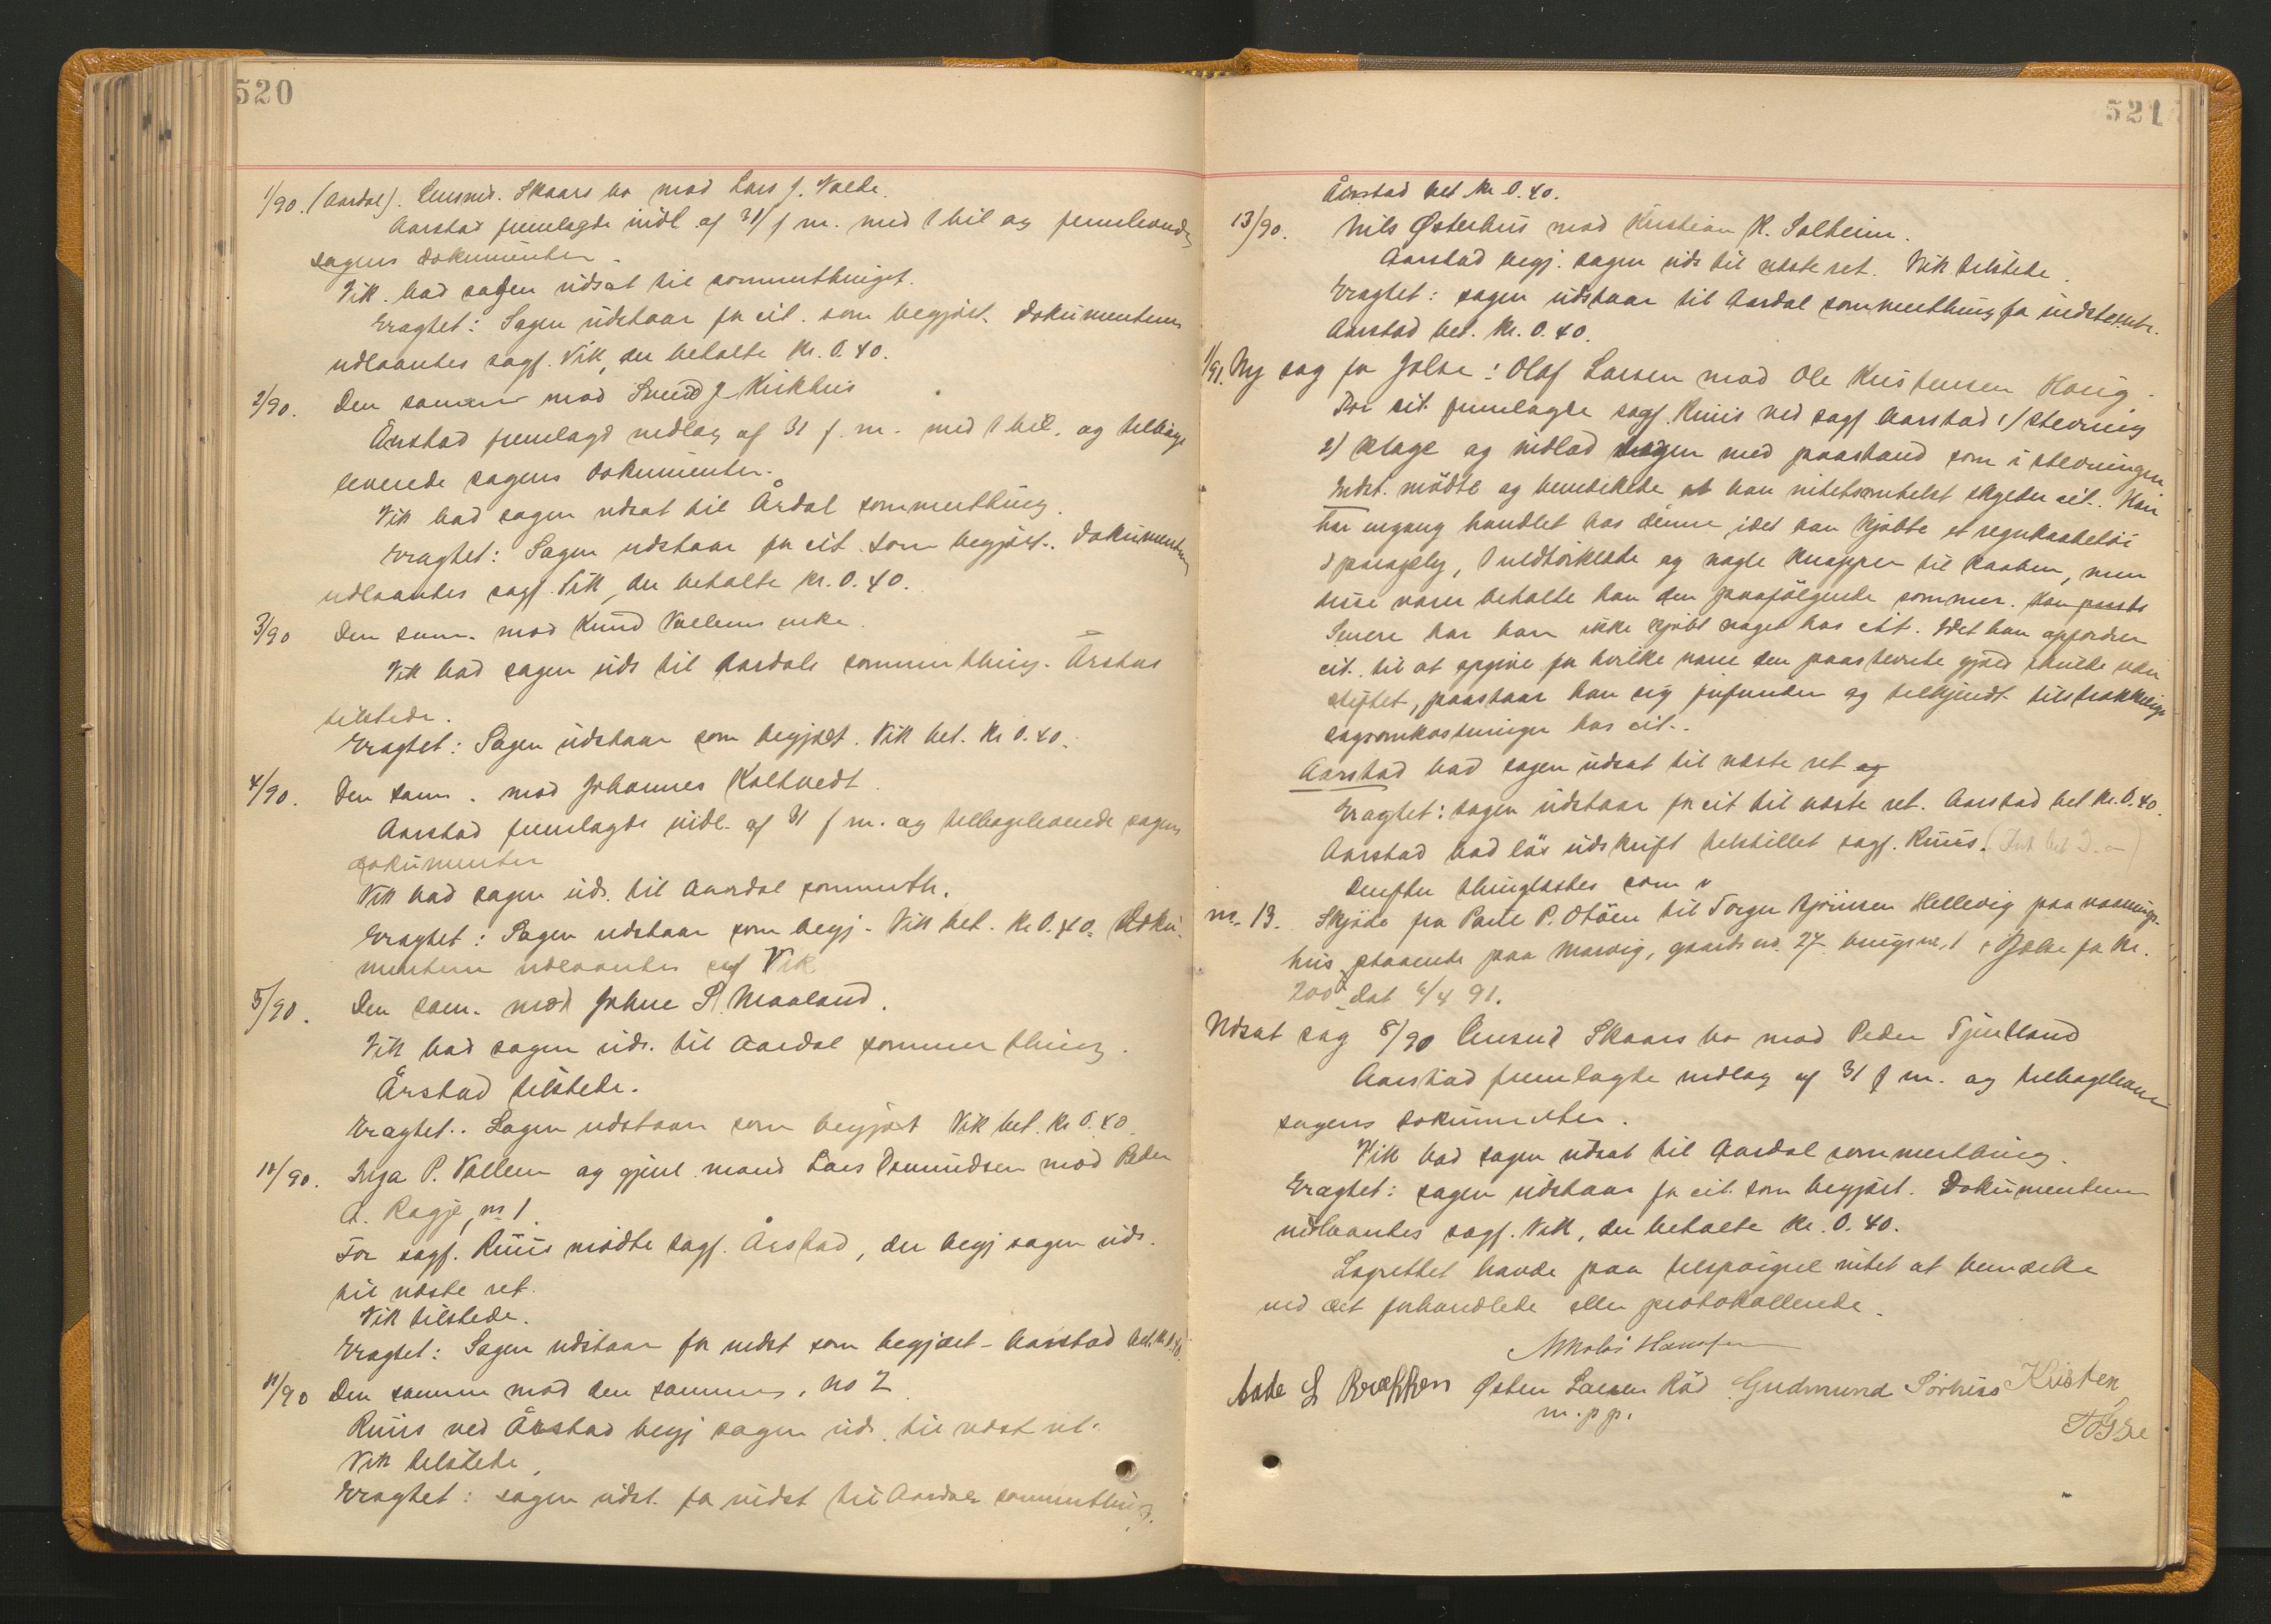 520
1/90. (Aardal). Lensmd. Skaars bo mod Lars J. Valde.
Aarstad fremlagde indl. af 31/ f. m. med 1 bil og fremleverede
sagens dokumenter.
Vik bad sagen udsat til sommerthinget.
Eragtet: Sagen udstaar for cit. som begjært. Dokumenterne
udlaantes sagf. Vik, der betalte Kr. 0.40.
2/90. Den samme mod Svend J. Kirkhus
Årstad fremlagd indlæg af 31 f. m. med 1 bil. og tilbage
leverede sagens dokumenter.
Vik bad sagen udsat til Årdal sommerthing.
Eragtet: Sagen udstaar for cit. som begjært. Dokumenterne
udlaantes sagf. Vik, der betalte Kr. 0.40.
3/90 Den sam. mod Knud Vallems enke.
Vik bad sagen uds til Aardals sommerthing. Årstad
tilstede.
Eragtet: Sagen udstaar som begjært. Vik bet. Kr 0.40.
4/90. Den sam. mod Johannes Kaltvedt.
Aarstad fremlagde indl. af 31 f m. og tilbageleverede sagens
dokumenter
Vik bad sagen uds. til Aardal sommerth.
Eragtet: Sagen udstaar som begj. Vik bet. Kr 0.40. Doku-
menterne udlaantes sagf Vik
5/90. Den sam. mod Johne S. Maaland.
Vik bad sagen uds. til Aardal sommerthing.
Årstad tilstede.
Eragtet: Sagen udstaar som begjært Vik bet. Kr 0.40.
10/90. Inga P. Vallem og gjenl. mand Lars Osmundsen mod Peder
A. Ragje, no 1.
For sagf. Ruus mødte sagf. Årstad, der begj sagen uds.
til næste ret.
Vik tilstede.
Eragtet: Sagen udstaar for indst som begjært - Aarstad bet. Kr 0.40.
11/90 Den samme mod den samme, no 2
Ruus ved Årstad begj sagen uds. til næst ret.
Vik tilstede,
Eragtet: sagen udst. for indst til Aardals sommerthing.
521
Årstad bet Kr 0.40.
13/90. Nils Østerhus mod Kristian K. Solheim.
Aarstad begj. sagen uds til næste ret. Vik tilstede.
Eragtet: sagen udstaar til Aardal sommerthing for indstevnte.
Aarstad bet. Kr. 0.40.
1/91. Ny sag fra Jelse: Olaf Larsen mod Ole Kristensen Haug.
For cit. fremlagde sagf. Ruus ved sagf Aarstad 1/ stevning
2/ klage og indlod sagen med paastand som i stevningen
Indst. mødte og bemærkede at han intetsomhelst skylder cit. Han
har engang handlet hos denne idet han kjøbte et regnkaabetøi
1 paraply, 1 uldtørklæde og nogle knapper til kaaben, men
disse varer betalte han den paafølgende sommer.
Senere har han ikke kjøbt noget hos cit. Idet han opfordrer
cit. til at opgive for hvilke varer den paastevnte gjæld skulde være
stiftet, paastaar han sig frifunden og tilkjendt tilstrækkelige
sagsomkostninger hos cit.
Aarstad bad sagen udsat til næste ret og
Eragtet: sagen udstaar for cit til næste ret. Aarstad bet Kr. 0.40.
Aarstad bad løs udskrift tilstillet sagf. Ruus.
Derefter thinglæstes som
no. 13. Skjøde fra Paul P. Otøen til Torger Bjørnsen Hellevig paa vaanings-
hus staaende paa Marvig, gaards no. 27 brugs no. 1 i Jælse for Kr.
200 dat 6/4 91.
Udsat sag 8/90 Lensmd Skaars bo mod Peder Tjentland
Aarstad fremlagde indlæg af 31 f m. og tilbageleverede
sagens dokumenter.
Vik bad sagen udsat til Aardal sommerthing.
Eragtet: sagen udstaar for cit. som begjært. Dokumenterne
udlaantes sagf. Vik, der betalte Kr. 0.40.
Lagrettet havde paa tilspørgsel intet at bemærke
ved det forhandlede eller protokollerede.
Nikolai Hansen
Aade L Brækken Østen Larsen Råd Gudmund Sørhus Kristen
m. p. p.